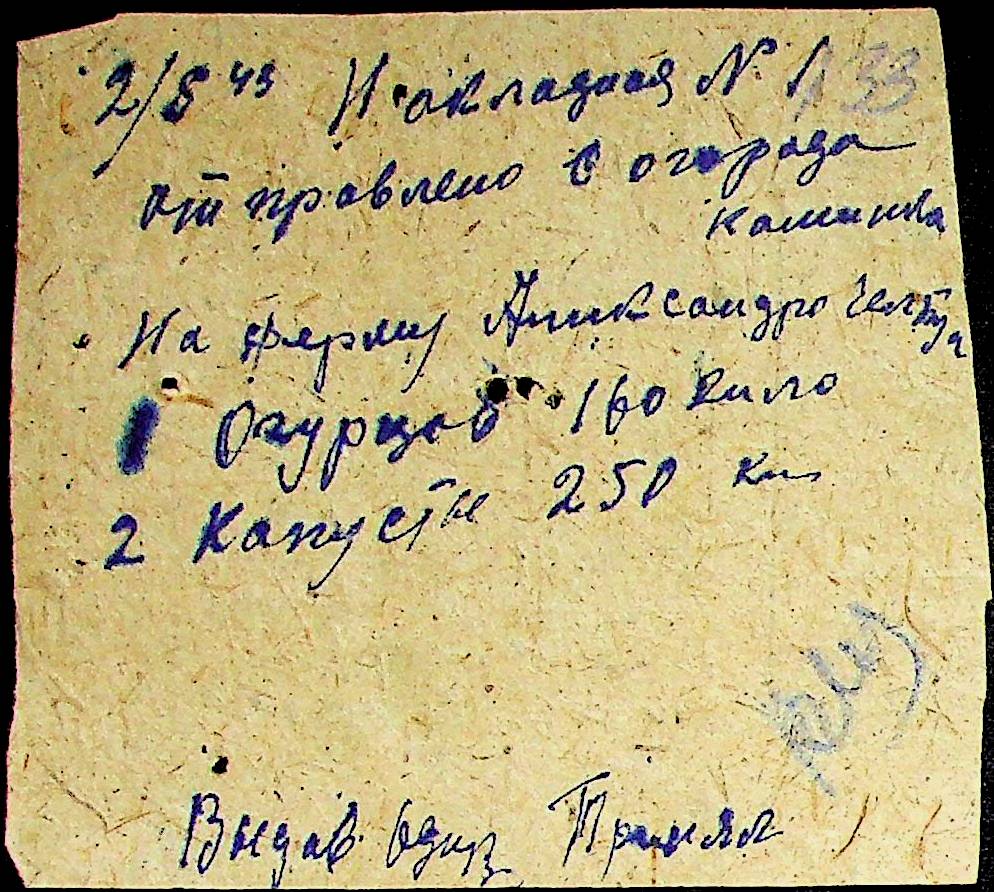 2/8 43 Накладная № 1 133
отправлено с огорода
камынва
На ферму Александро
1 Огурцов 160 кило
2 Капусты 250 кил
Выдав Принял